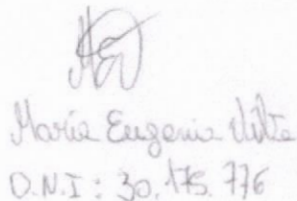 María Eugenia Vilte
D.N.I: 30.175.776